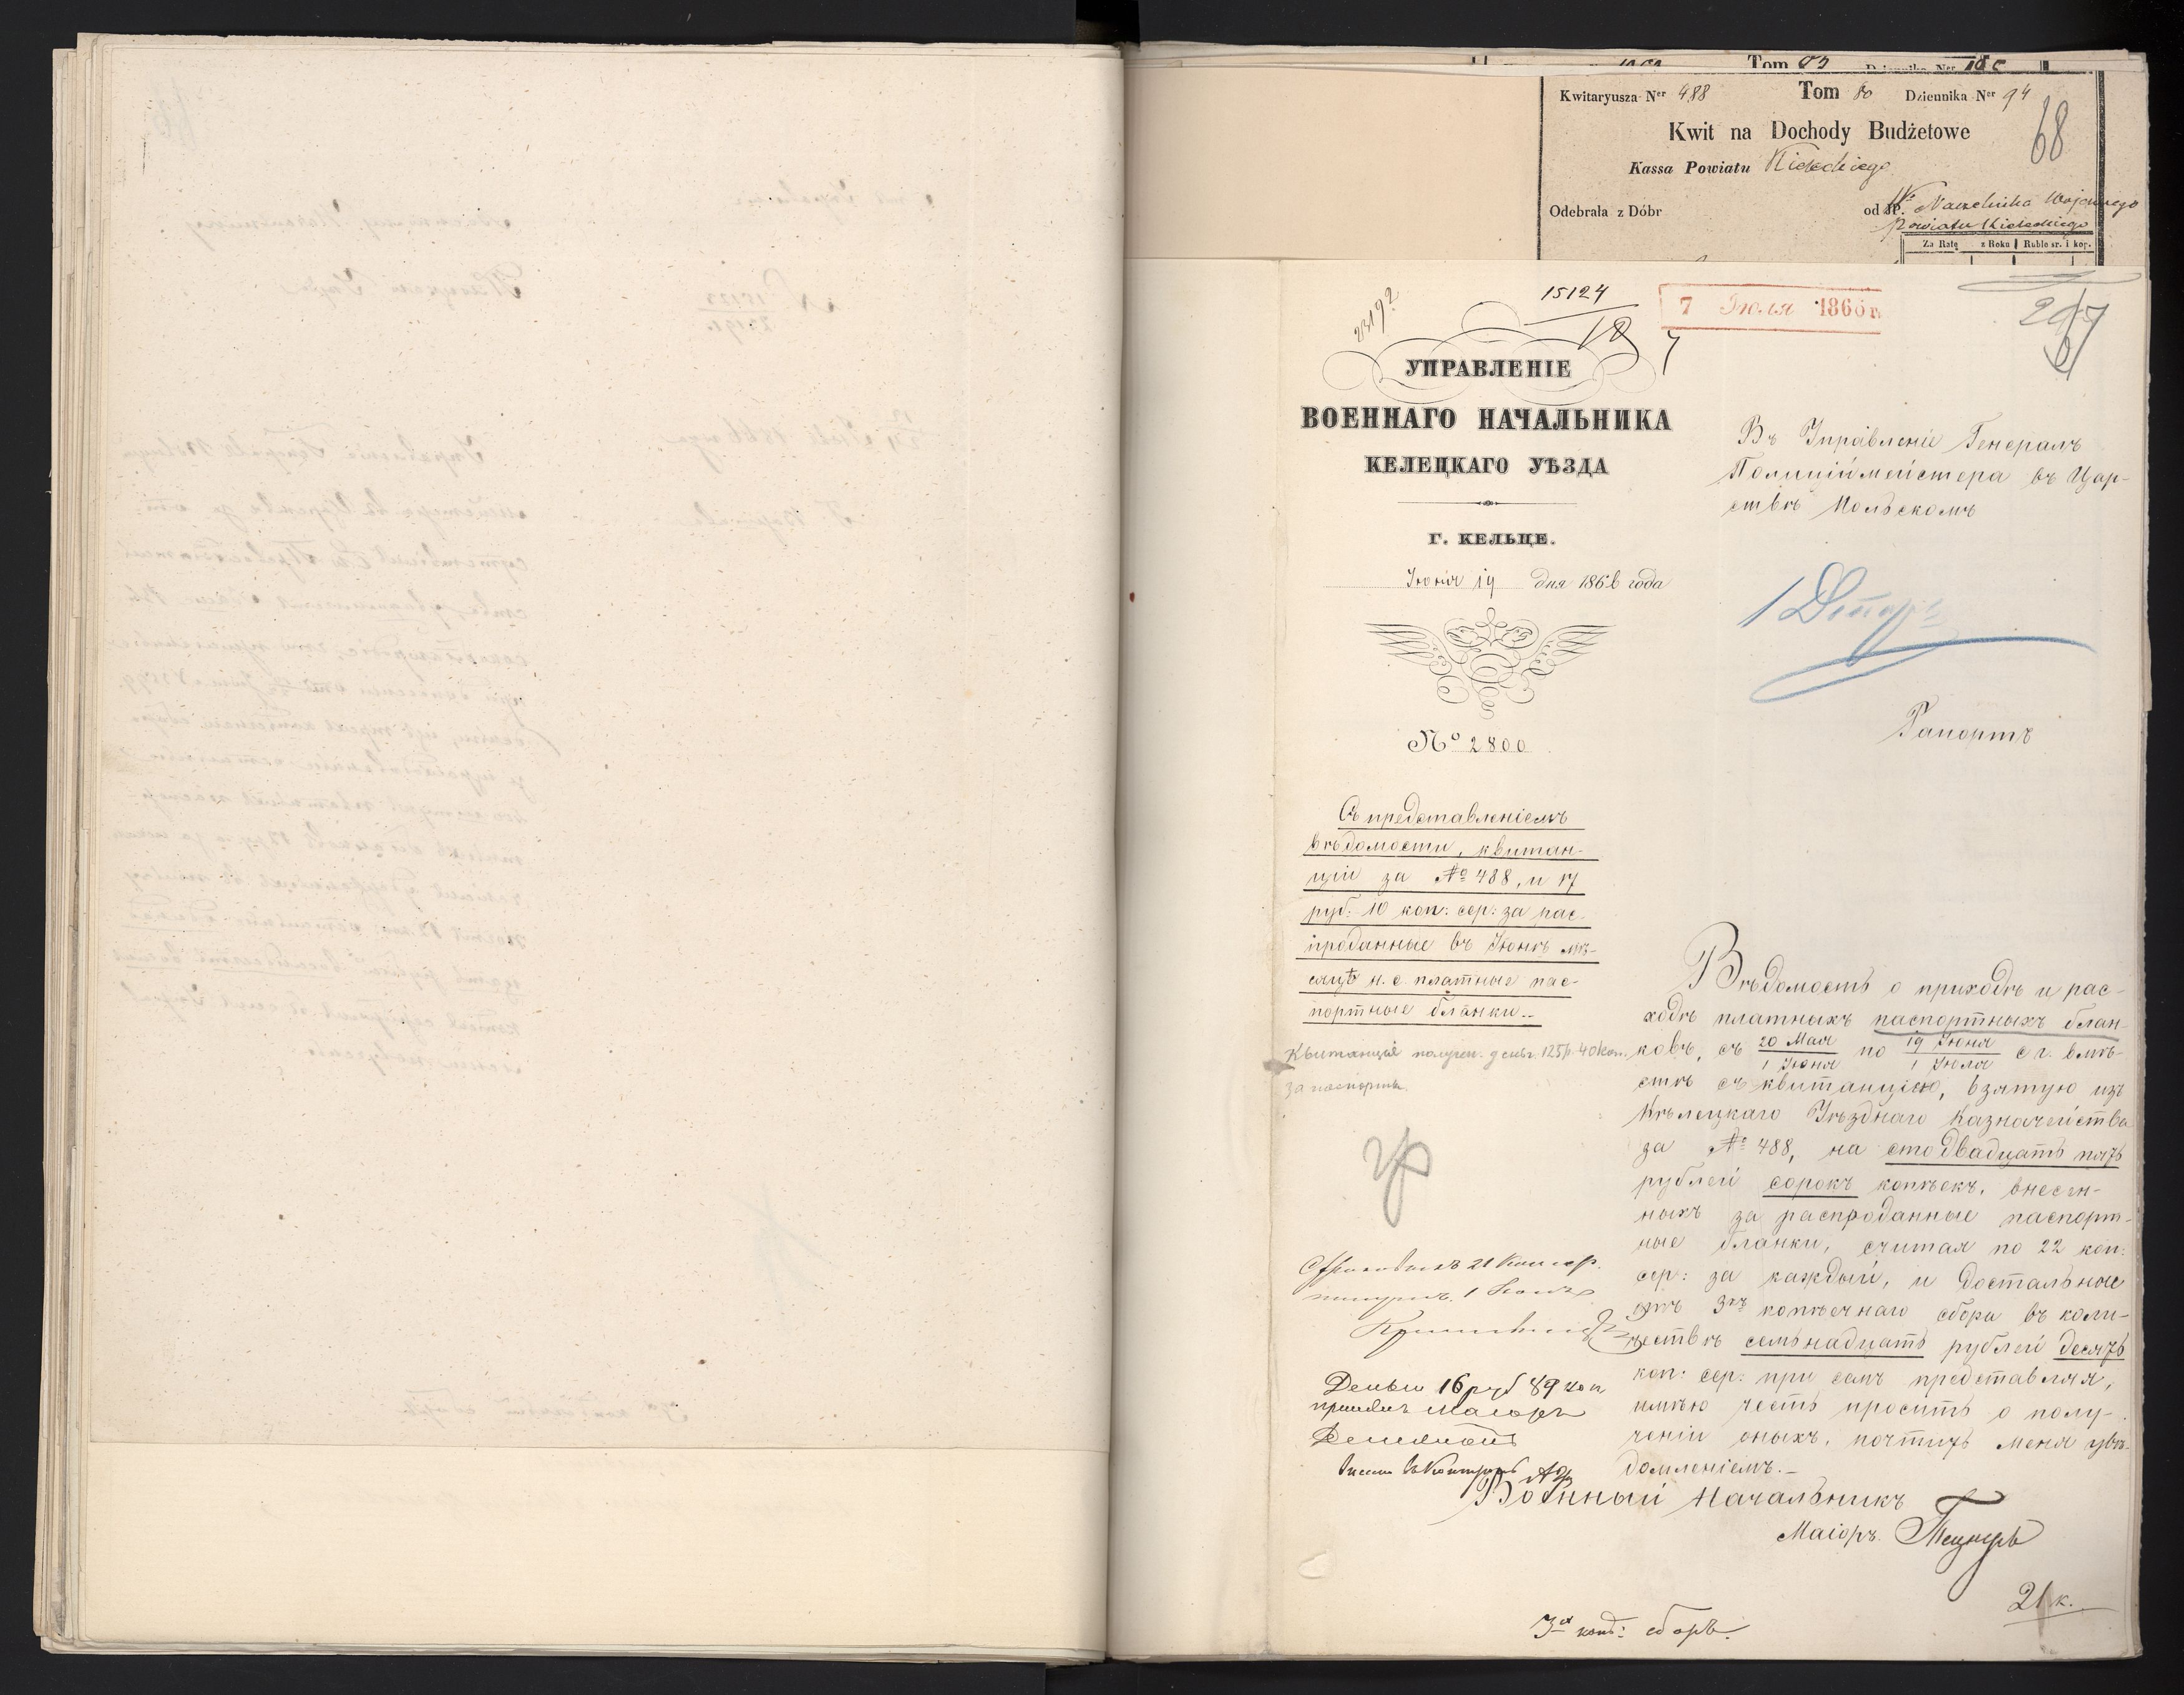 Tom 83 Dziennika Ner
Kwitaryusza Ner 488 Tom 80 Dziennika Ner 94
Kwit na Dochody Budżetowe
68
Kassa Powiatu Kieleckiego
Odebrała z Dóbr od JP. Naczelnika Wojennego
Powiatu Kieleckiego
Za Ratę z Roku Ruble sr. i kop.
23192
15124
18
7
7 Июля 1866 г.
УПРАВЛЕНІЕ
ВОЕННАГО НАЧАЛЬНИКА
КЕЛЕЦКАГО УѢЗДА
Г. КЕЛЬЦЕ.
Іюня 19 дня 1866 года
№ 2800
Съ представленіемъ
вѣдомости, квитан-
ціи за № 488, и 17
руб: 10 коп: сер: за рас-
проданные въ Іюнѣ мѣ-
сяцѣ н. с. платные пас-
портные бланки.-
Квитанція получен. денег. 125 р. 40 коп.
за паспорты.
67
Въ Управленіе Генералъ
Полиціймейстера въ Цар-
ствѣ Польскомъ
Рапортъ
Вѣдомость о приходѣ и рас-
ходѣ платныхъ паспортныхъ блан-
ковъ, съ 20 Мая / 1 Іюня по 19 Іюня / 1 Іюля с г. вмѣ-
стѣ съ квитанціею, взятую изъ
Кѣлецкаго Уѣзднаго Казначейства
за № 488, на сто двадцать пять
рублей сорокъ копѣекъ, внесен-
ныхъ за распроданные паспорт-
ные бланки, считая по 22 коп:
сер: за каждый, и достальные
3хъ копѣечнаго сбора въ коли-
чествѣ семьнадцать рублей десять
коп: сер: при семъ представляя,
имѣю честь просить о полу-
ченіи оныхъ, почтить меня увѣ-
домленіемъ.-
Военный Начальникъ
Маіоръ
Деньги 16 руб 89 коп
принялъ Маіоръ
21 к.
3х коп: сборъ.